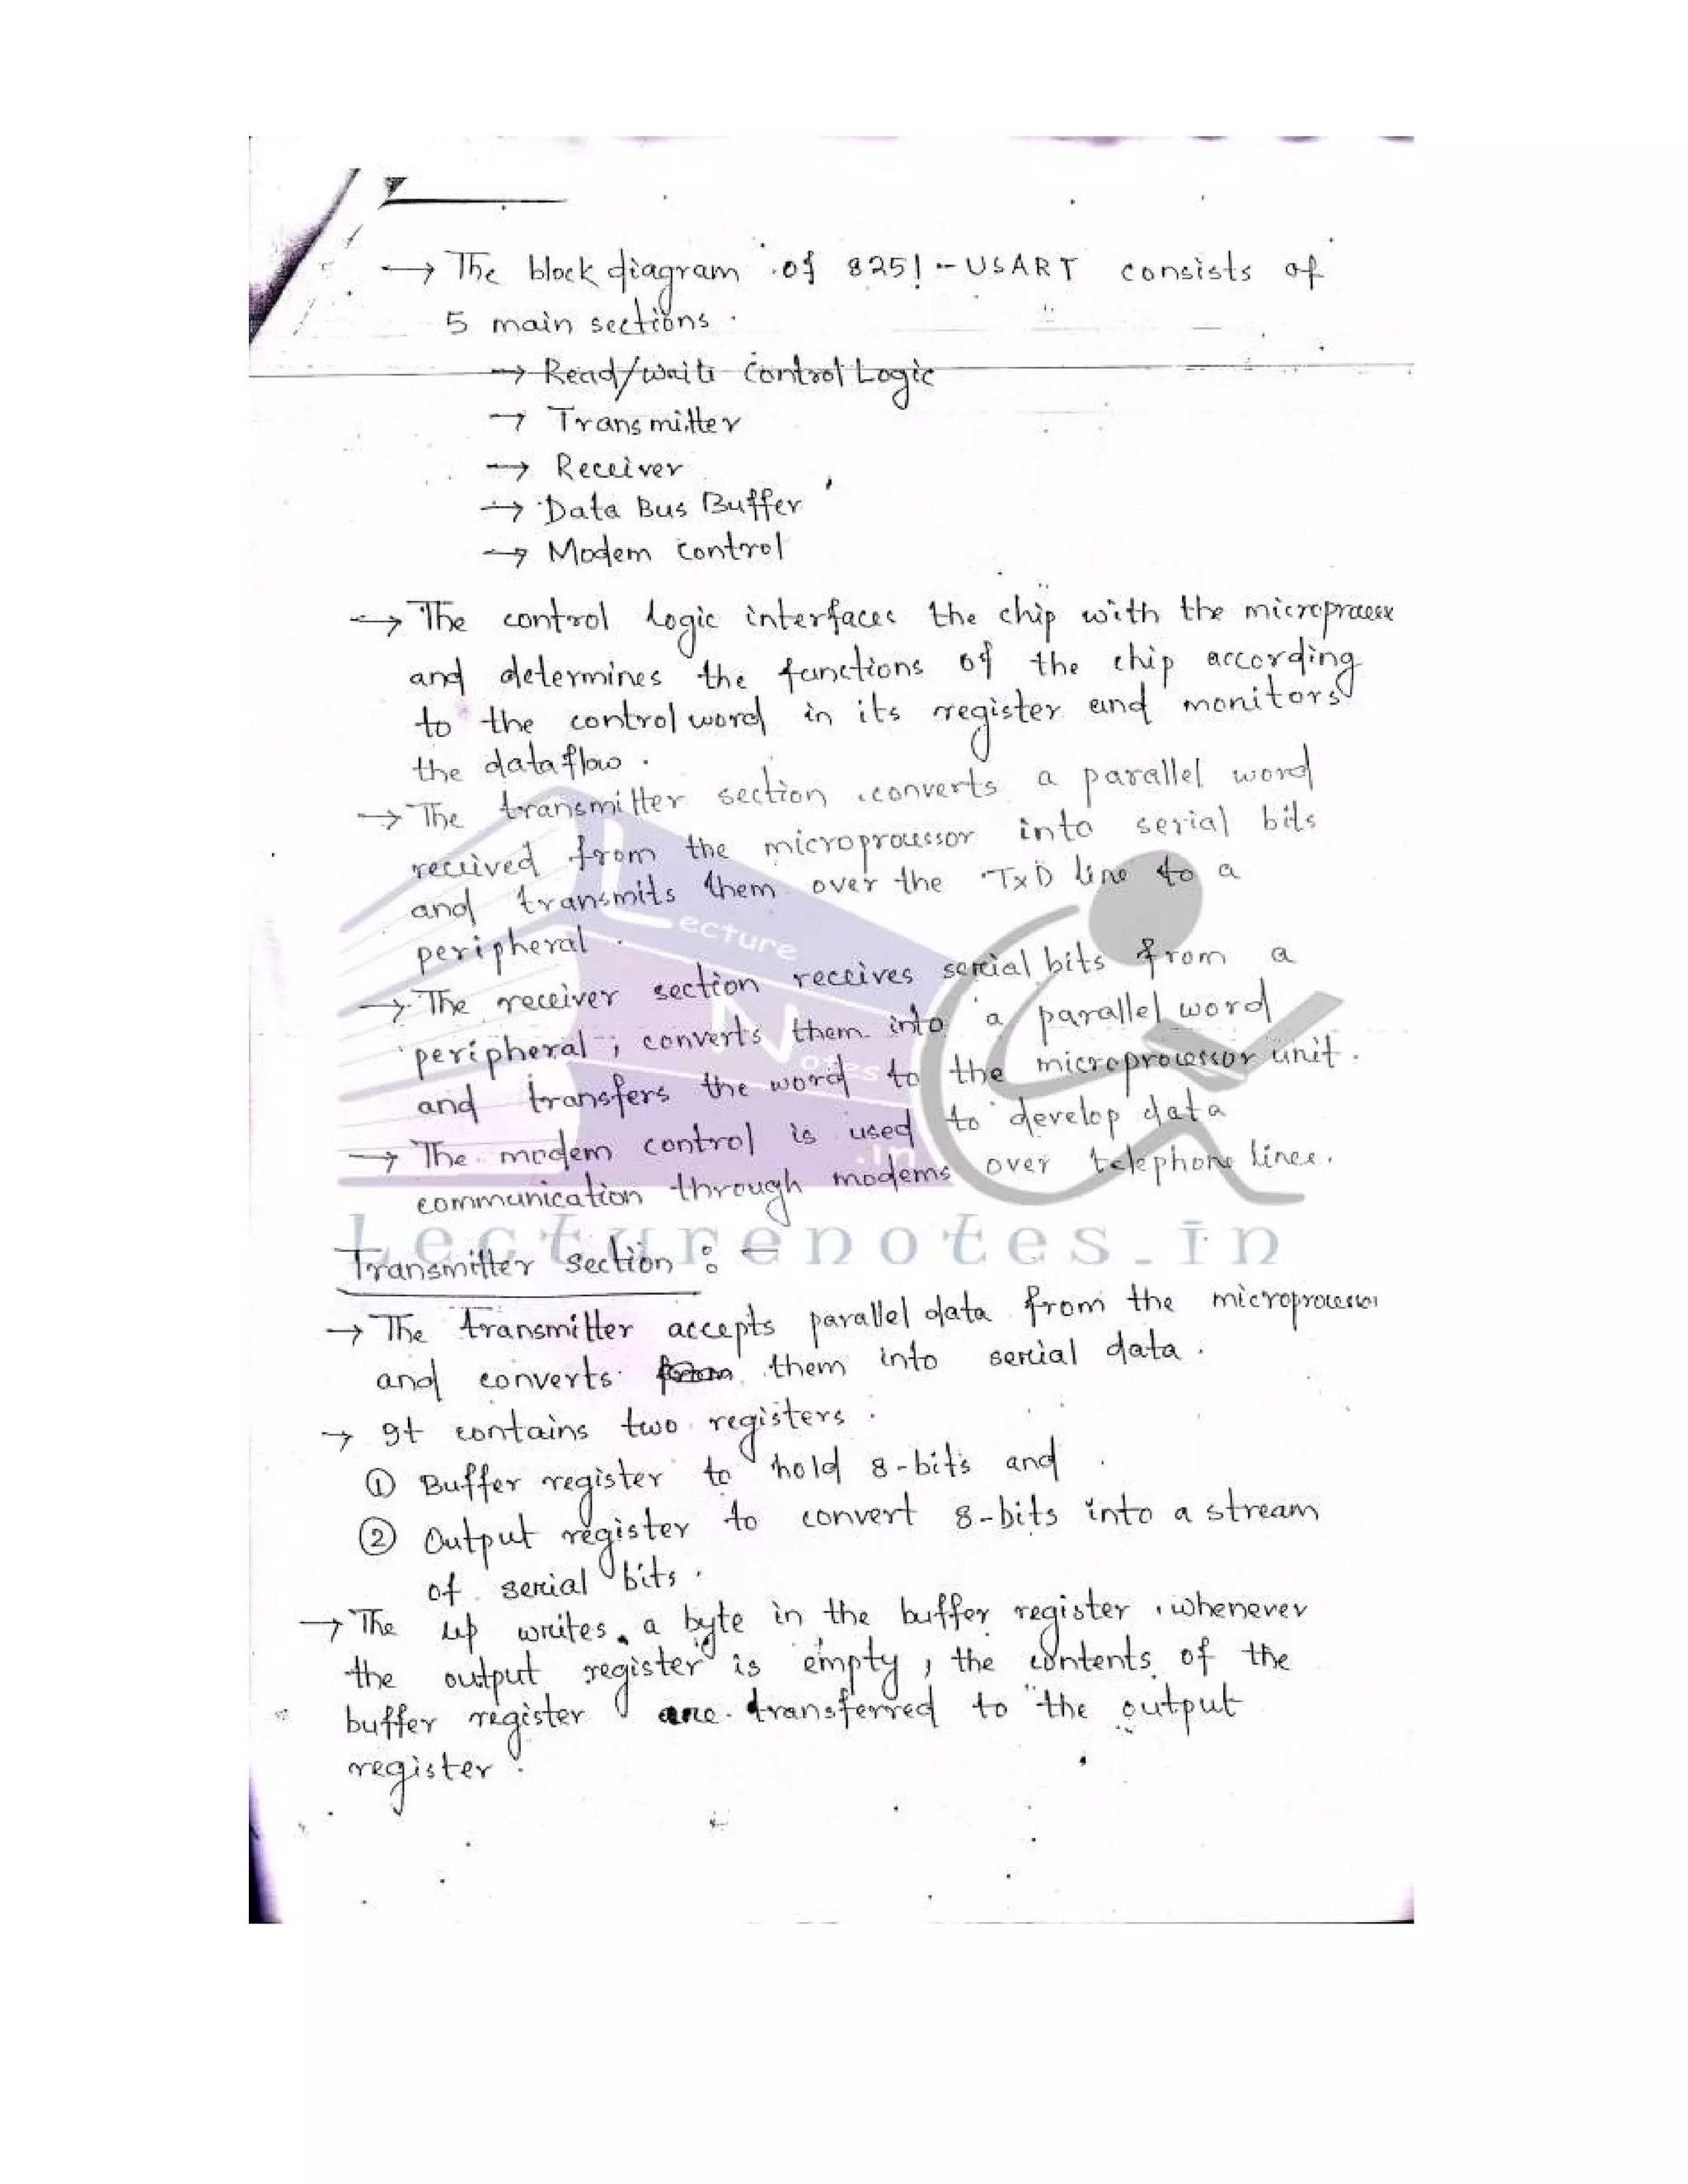 → The block diagram of 8251 - USART consists of
5 main sections.
→ Read/Write Control Logic
→ Transmitter
→ Receiver
→ Data Bus Buffer
→ Modem Control
→ The control logic interfaces the chip with the microprocessor
and determines the functions of the chip according
to the control word in its register and monitors
the dataflow.
→ The transmitter section converts a parallel word
received from the microprocessor into serial bits
and transmits them over the TxD line to a
peripheral.
→ The receiver section receives serial bits from a
peripheral, converts them into a parallel word
and transfers the word to the microprocessor unit.
→ The modem control is used to develop data
communication through modems over telephone lines.
Lecture
Notes
.in
Lecturenotes.in
Transmitter section :-
→ The transmitter accepts parallel data from the microprocessor
and converts them into serial data.
→ It contains two registers.
① Buffer register to hold 8-bits and
② Output register to convert 8-bits into a stream
of serial bits.
→ The μp writes a byte in the buffer register. whenever
the output register is empty, the contents of the
buffer register are transferred to the output
register.